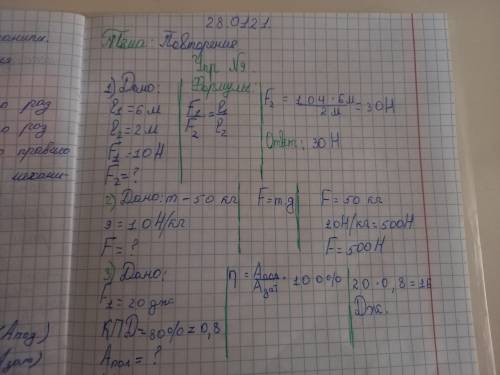 28.0121.
Тема: Повторение
Упр. №9.
1) Дано:
l1 = 6 м
l2 = 2 м
F1 - 10 Н
F2 = ?
Формулы:
F1/F2 = l1/l2
F2 = 10Н · 6м / 2м = 30Н
Ответ: 30 Н
2) Дано: m - 50 кг
g = 10 Н/кг
F = ?
F = m g
F = 50 кг
10Н/кг = 500Н
F = 500Н
3) Дано:
F1 = 20 дж
КПД = 80% = 0,8
Aпол = ?
η = Aпол/Aзат · 100%
20 · 0,8 = 16
Дж.
о род
о род
о правило
механи-
(Апод)